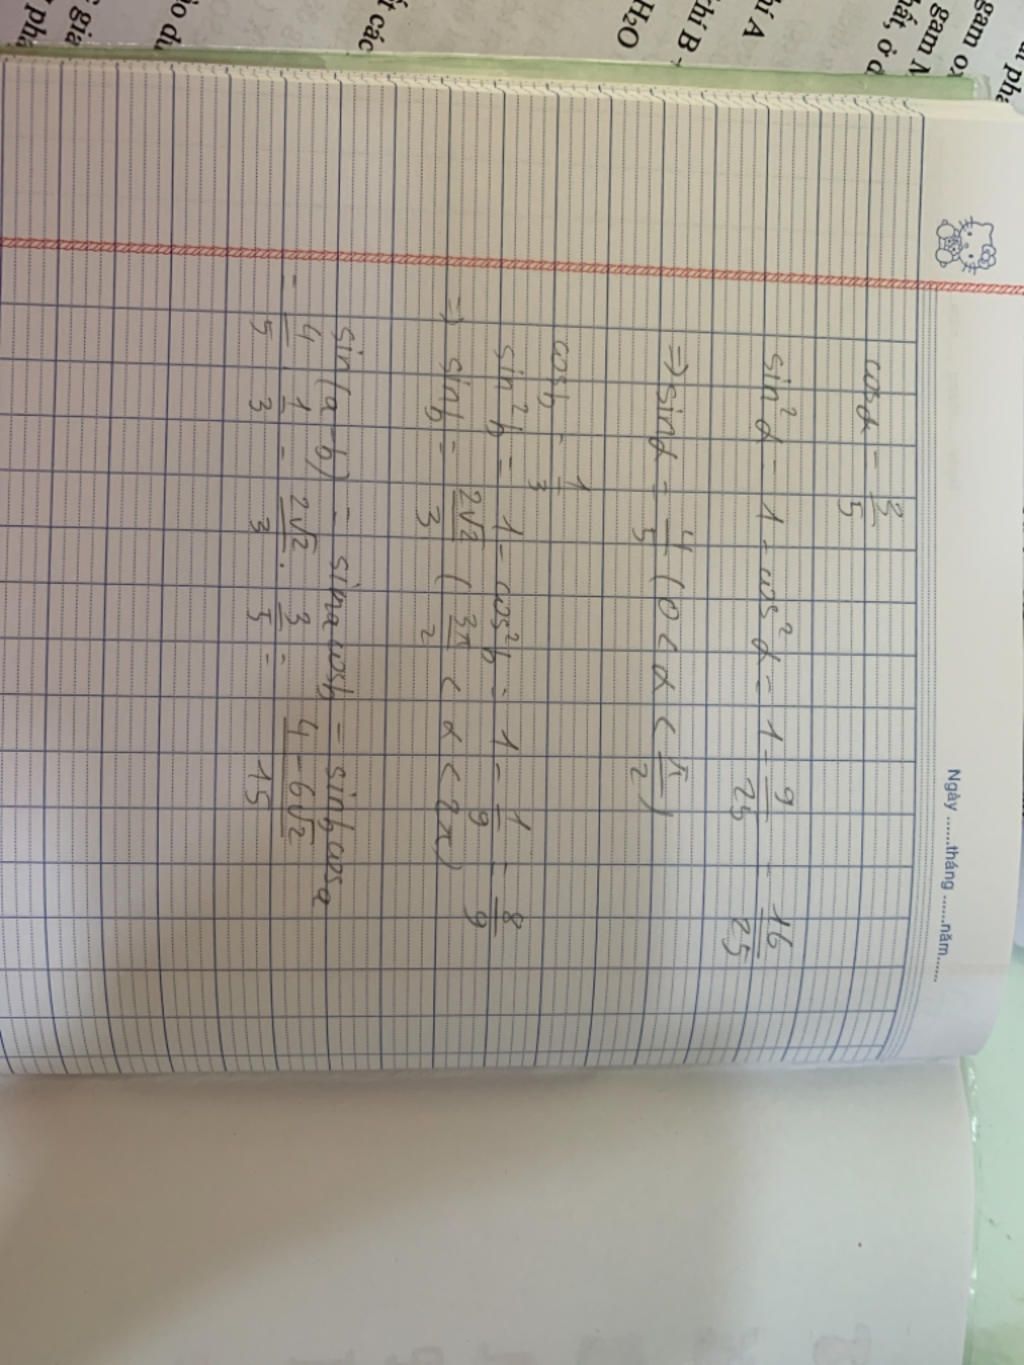 Ngày ......tháng ......năm......
cosα = 3/5
sin²α = 1 - cos²α = 1 - 9/25 = 16/25
=> sinα = 4/5 (0 < α < π/2)
cosb = 1/3
sin²b = 1 - cos²b = 1 - 1/9 = 8/9
=> sinb = 2√2/3 (3π/2 < α < 2π)
sin(a-b) = sina cosb = sinb cosa
= 4/5 . 1/3 - 2√2/3 . 3/5 = 4 - 6√2/15
gam
gam
hất, ở
hí A
hí B
H₂O
các
gia